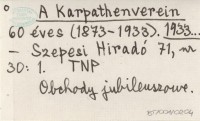 A Karpathenverein
60 éves (1873-1933). 1933...
– Szepesi Hiradó 71, nr
30: 1. TNP
Obchody jubileuszowe.